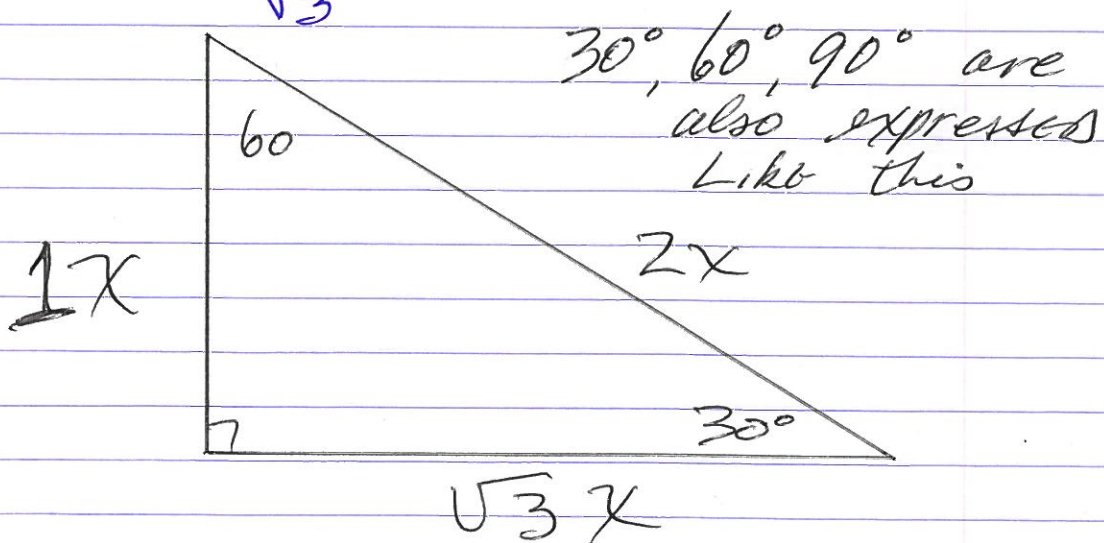 √3
30°, 60°, 90° are
also expressed
Like this
60
2x
1x
30°
√3 x